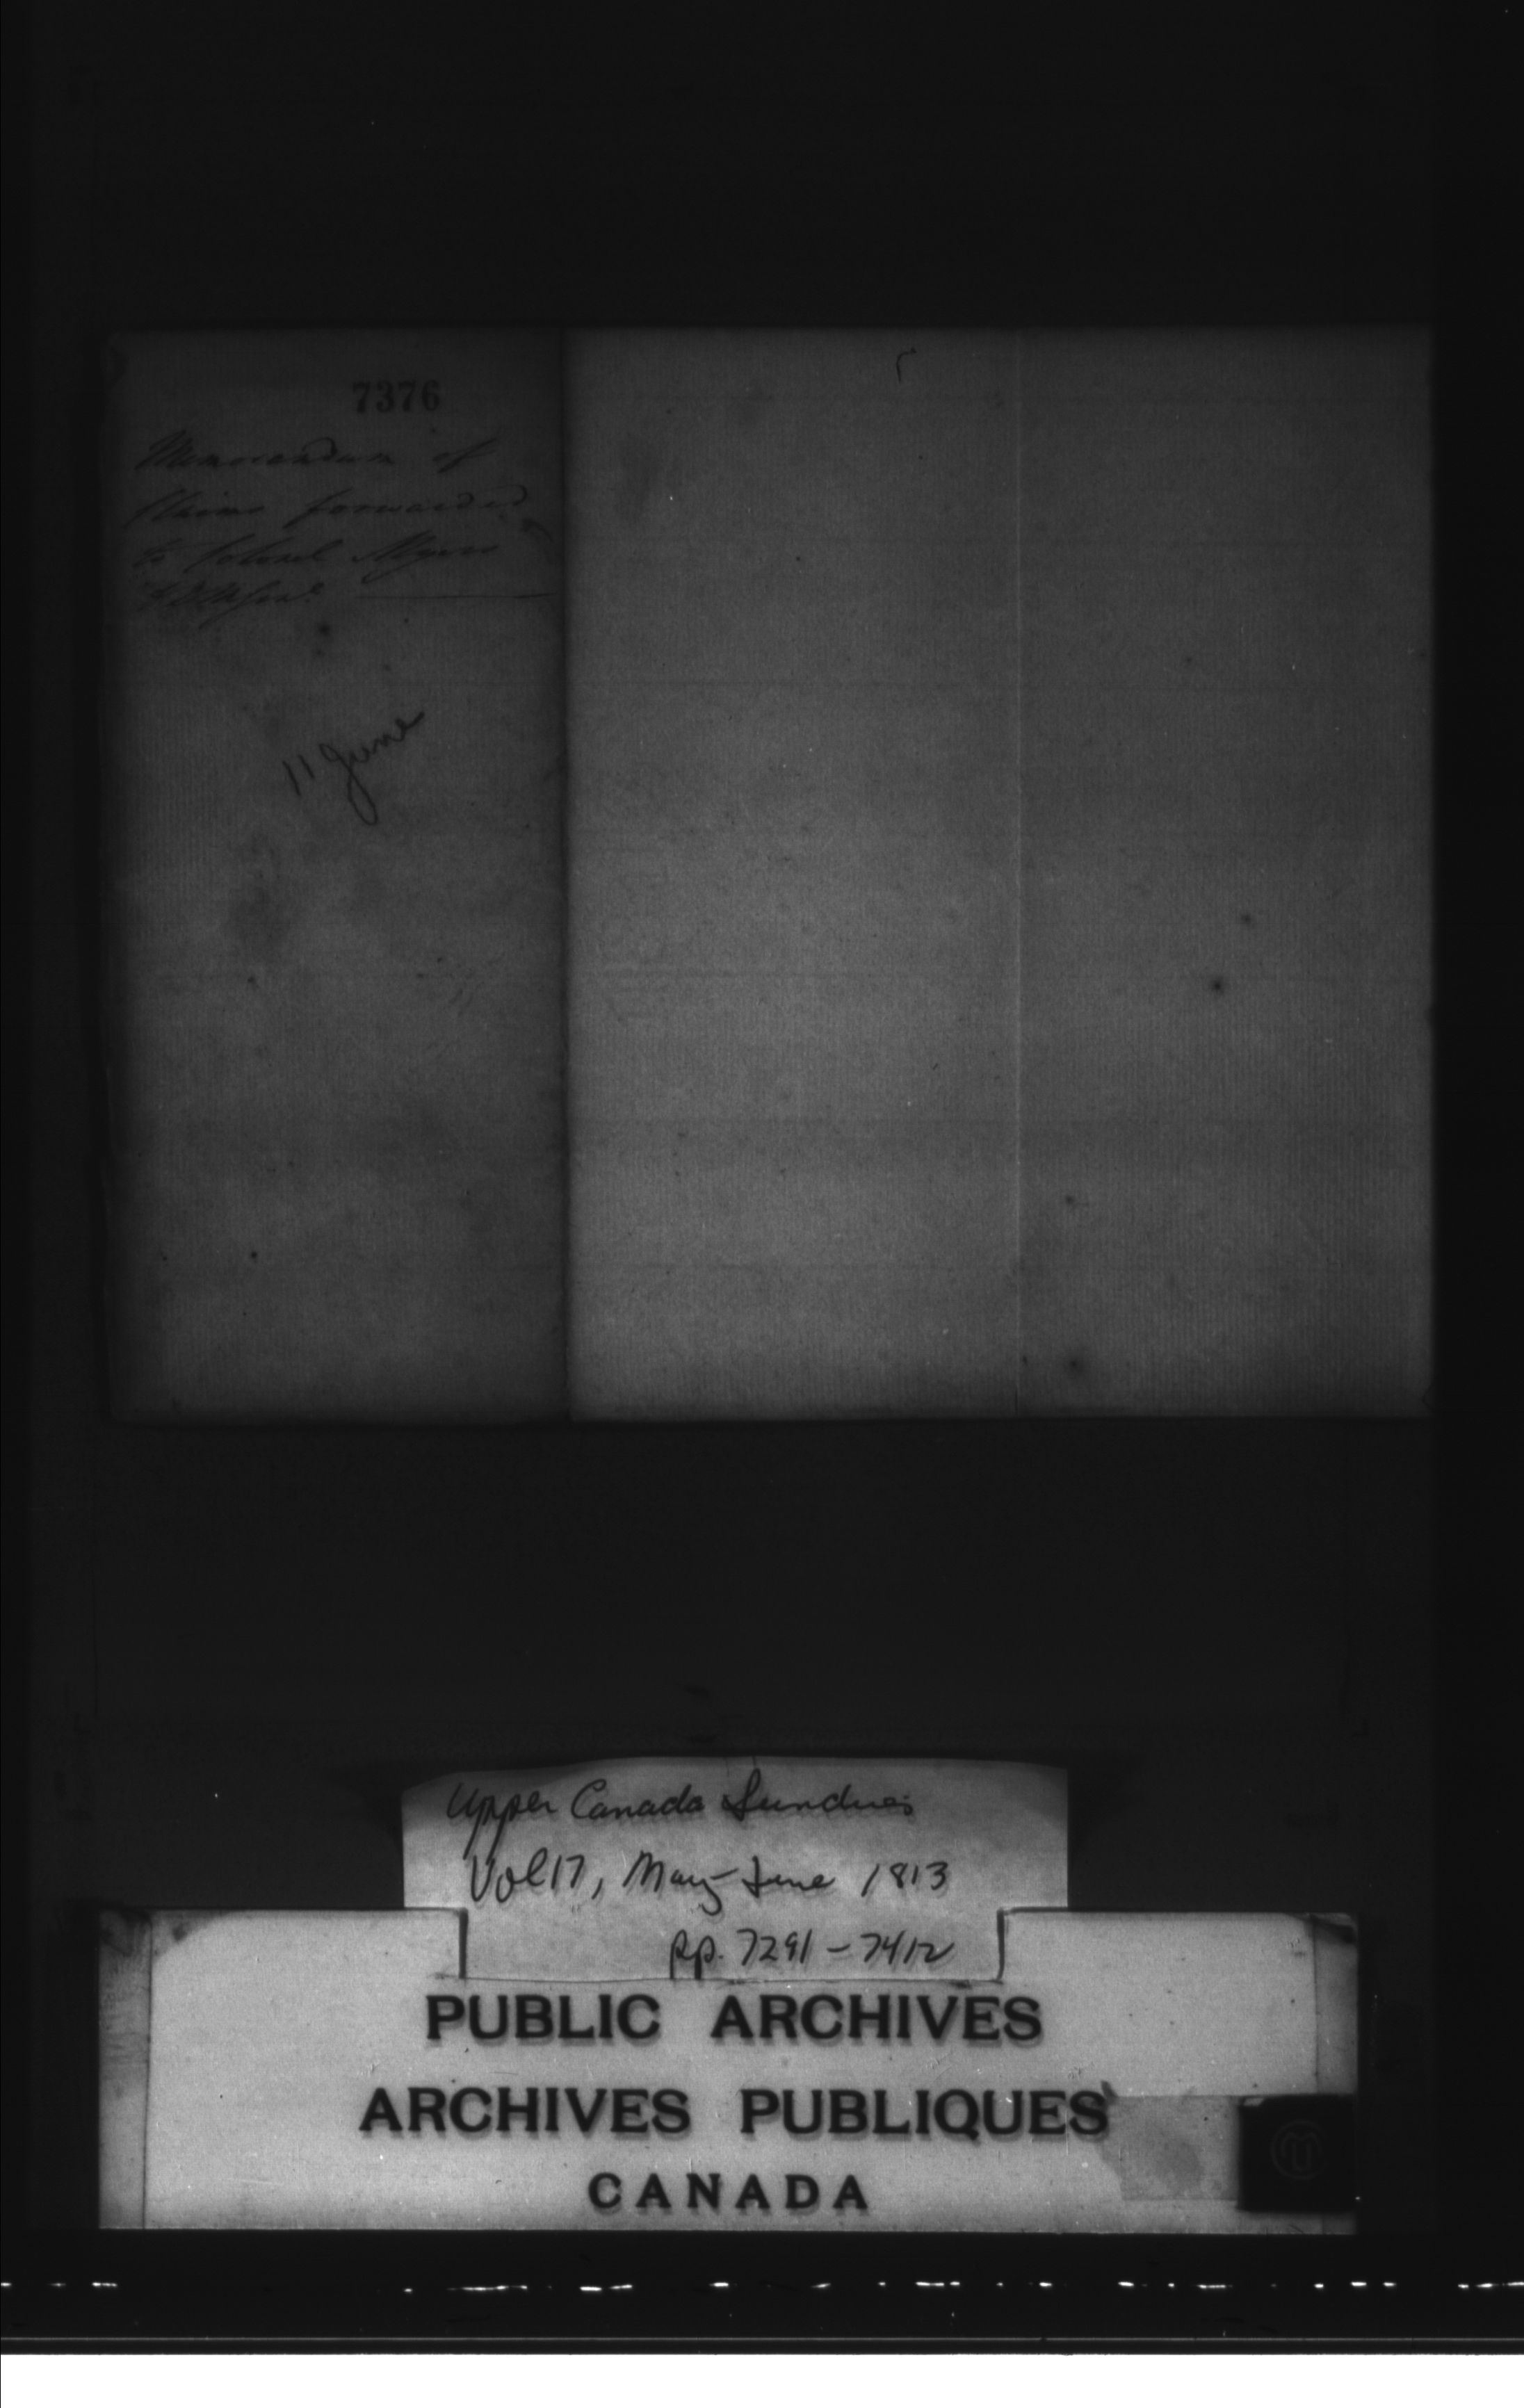 7376
Memorandum of
Claims forwarded
to Colonel Myers
11 June
Upper Canada Sundries
Vol 17, May-June 1813
pp. 7291-7412
PUBLIC ARCHIVES
ARCHIVES PUBLIQUES
CANADA